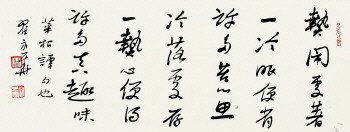 熱鬧處著
一冷眼便省
許多苦心思
冷落處存
一熱心便得
許多真趣味
菜根譚句也